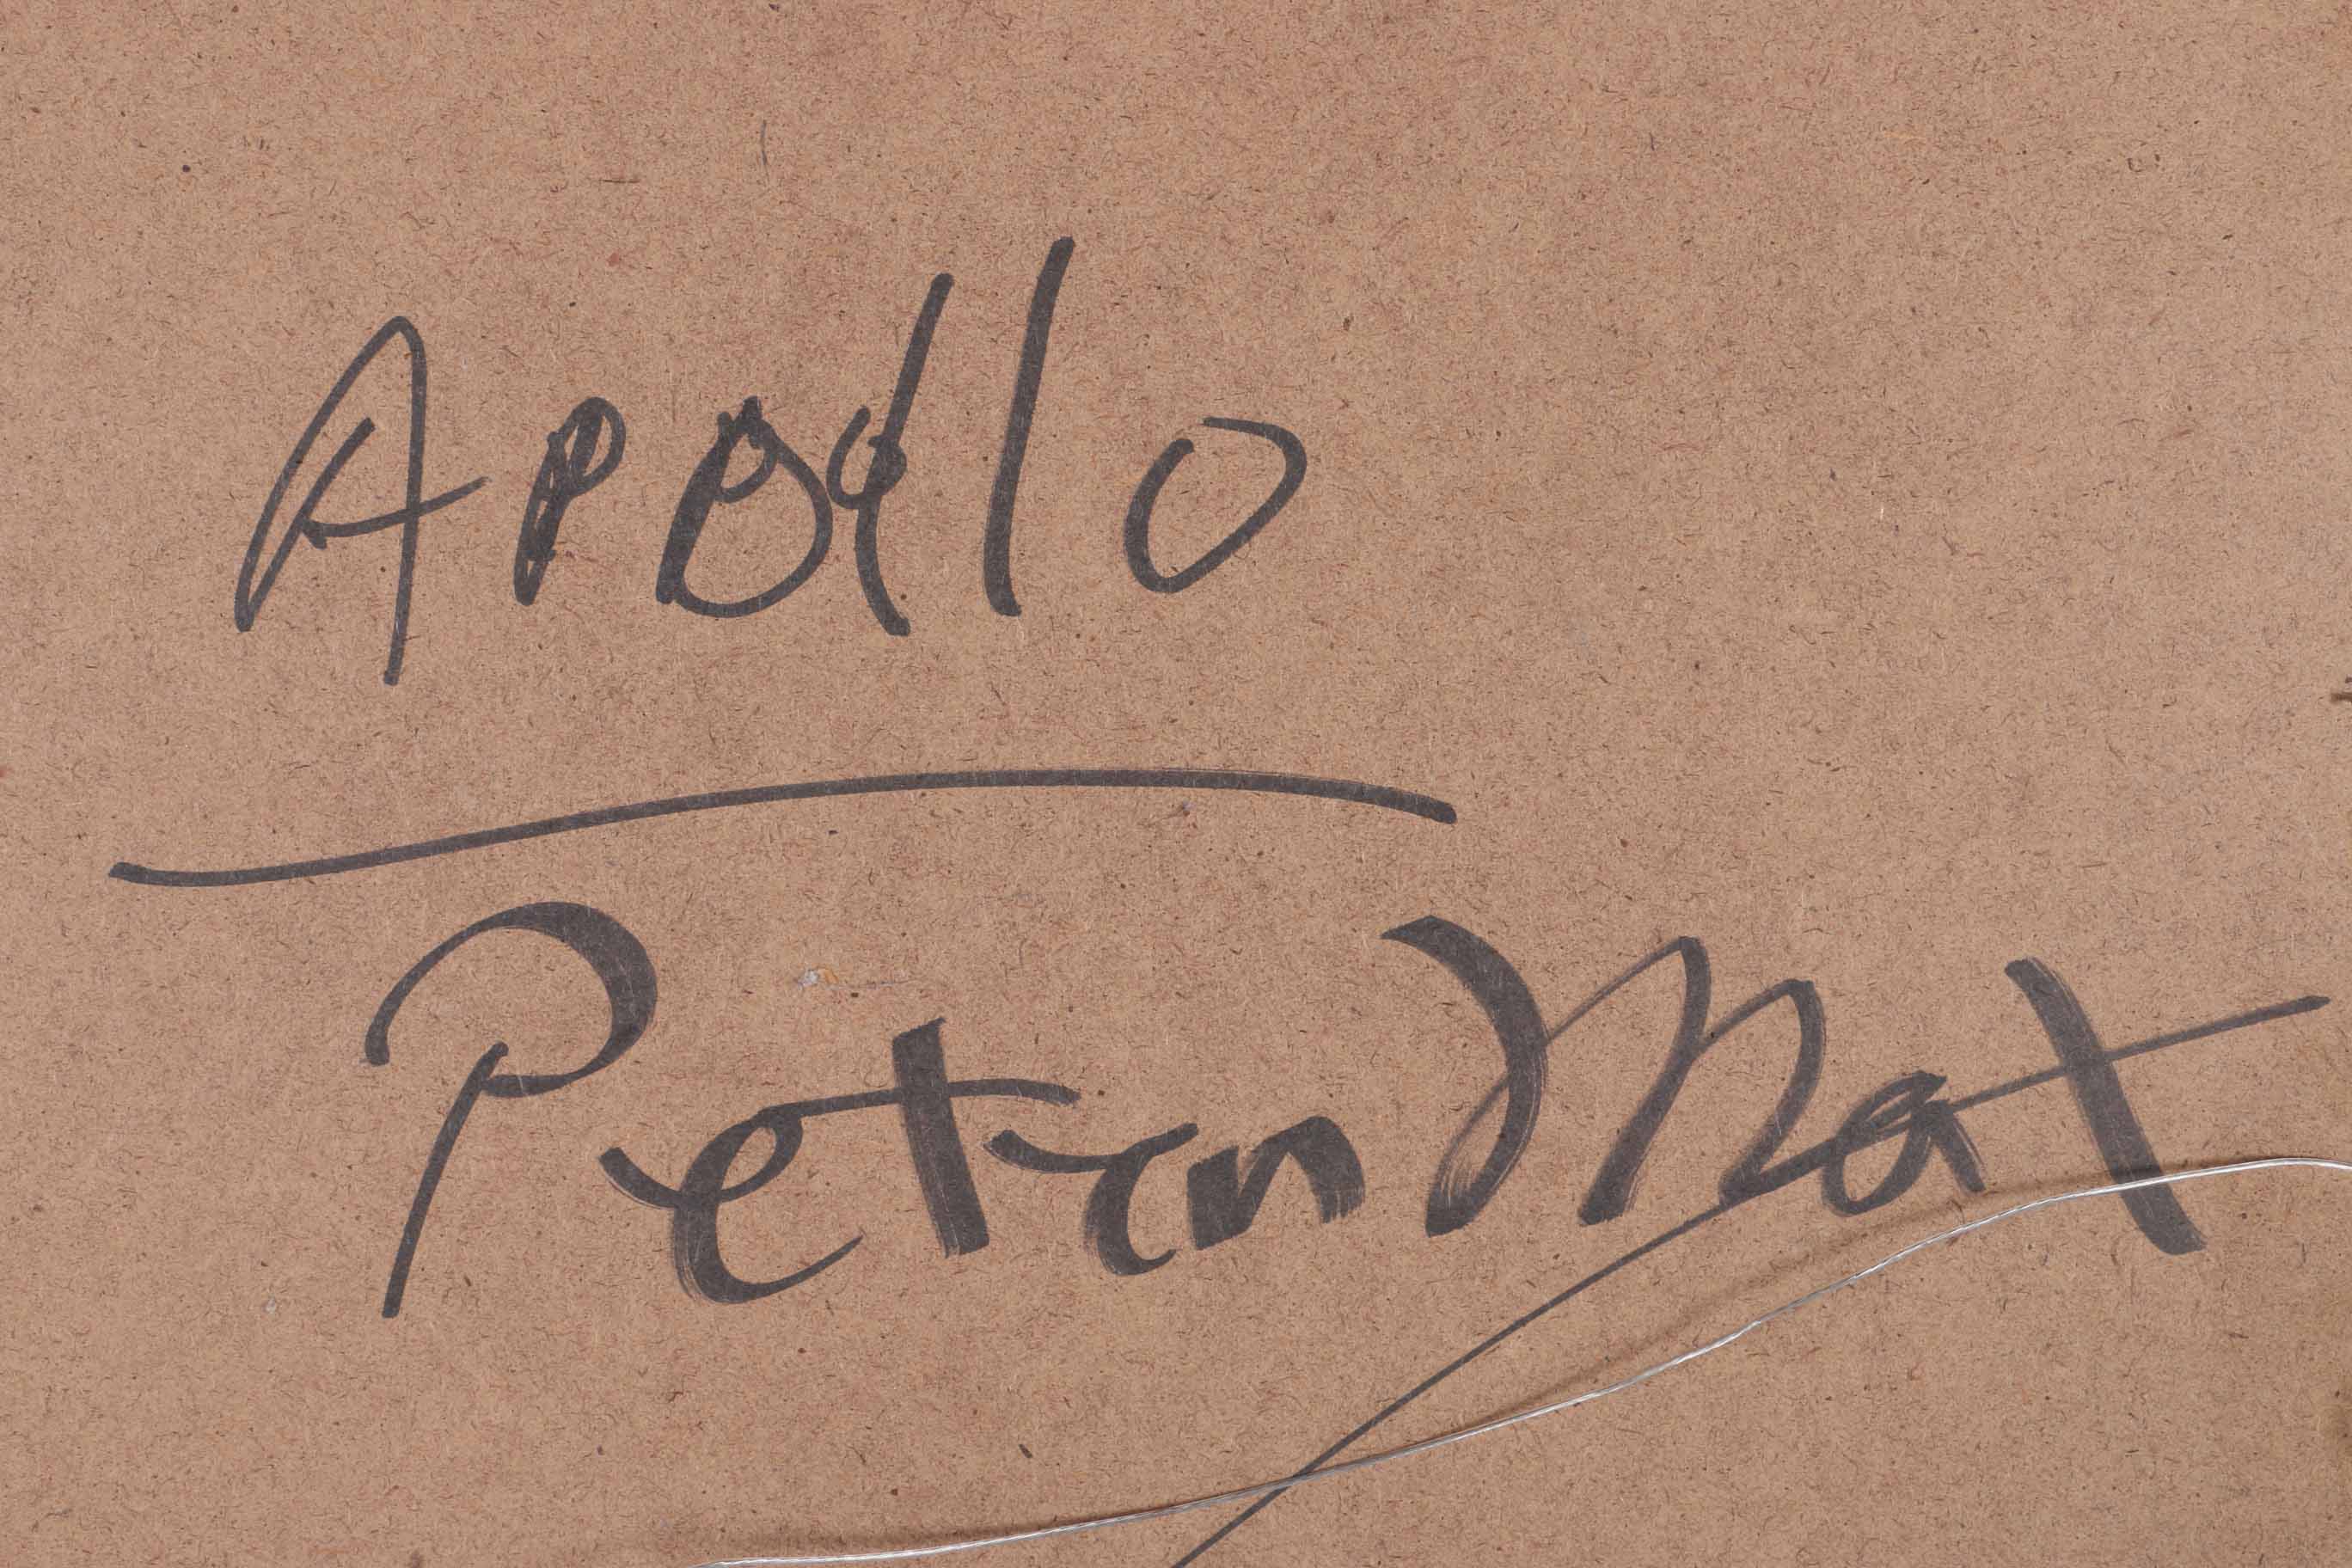 Apollo
Peter Mat